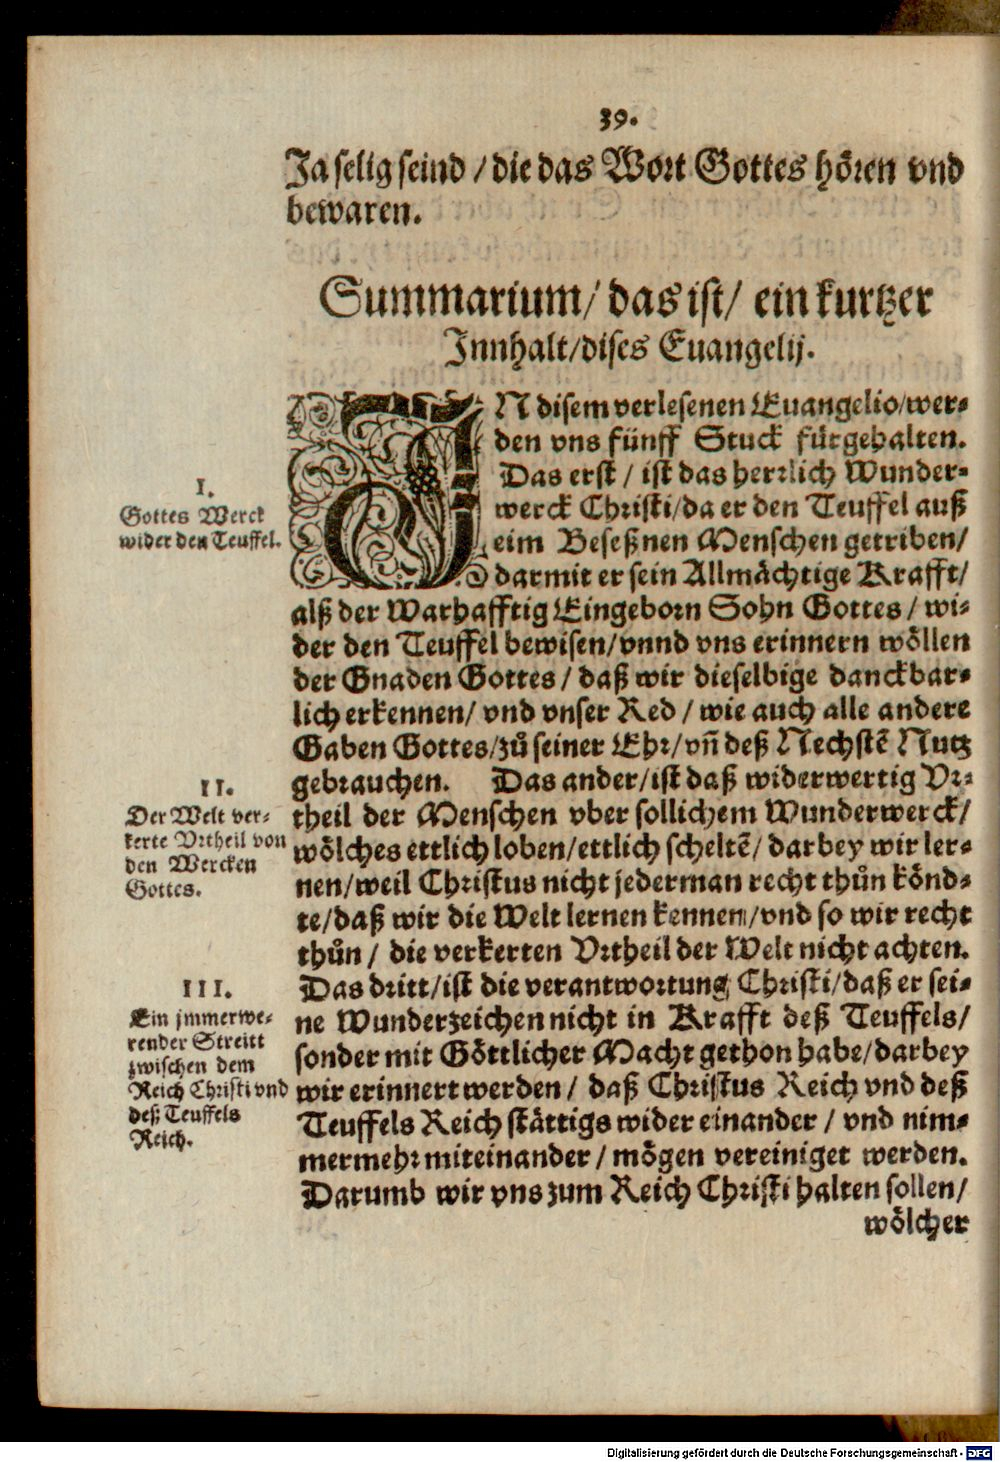 39.
Ja selig seind / die das Wort Gottes hören vnd
bewaren.
Summarium / das ist / ein kurtzer
Innhalt / dises Euangelij.
IN disem verlesenen Euangelio / wer-
den vns fünff Stuck fürgehalten.
Das erst / ist das herrlich Wunder-
werck Christi / da er den Teuffel auß
eim Beseßnen Menschen getriben /
darmit er sein Allmächtige Krafft /
alß der Warhafftig Eingeborn Sohn Gottes / wi-
der den Teuffel bewisen / vnnd vns erinnern wöllen
der Gnaden Gottes / daß wir dieselbige danckbar-
lich erkennen / vnd vnser Red / wie auch alle andere
Gaben Gottes / zů seiner Ehr / vñ deß Nechstẽ Nutz
gebrauchen. Das ander / ist daß widerwertig Vr-
theil der Menschen vber sollichem Wunderwerck /
wölches ettlich loben / ettlich scheltẽ / darbey wir ler-
nen / weil Christus nicht jederman recht thůn könd-
te / daß wir die Welt lernen kennen / vnd so wir recht
thůn / die verkerten Vrtheil der Welt nicht achten.
Das dritt / ist die verantwortung Christi / daß er sei-
ne Wunderzeichen nicht in Krafft deß Teuffels /
sonder mit Göttlicher Macht gethon habe / darbey
wir erinnert werden / daß Christus Reich vnd deß
Teuffels Reich stättigs wider einander / vnd nim-
mermehr miteinander / mögen vereiniget werden.
Darumb wir vns zum Reich Christi halten sollen /
wölcher
I.
Gottes Werck
wider den Teuffel.
II.
Der Welt ver-
kerte Vrtheil von
den Wercken
Gottes.
III.
Ein jmmerwe-
render Streitt
zwischen dem
Reich Christi vnd
deß Teuffels
Reich.
Digitalisierung gefördert durch die Deutsche Forschungsgemeinschaft - DFG